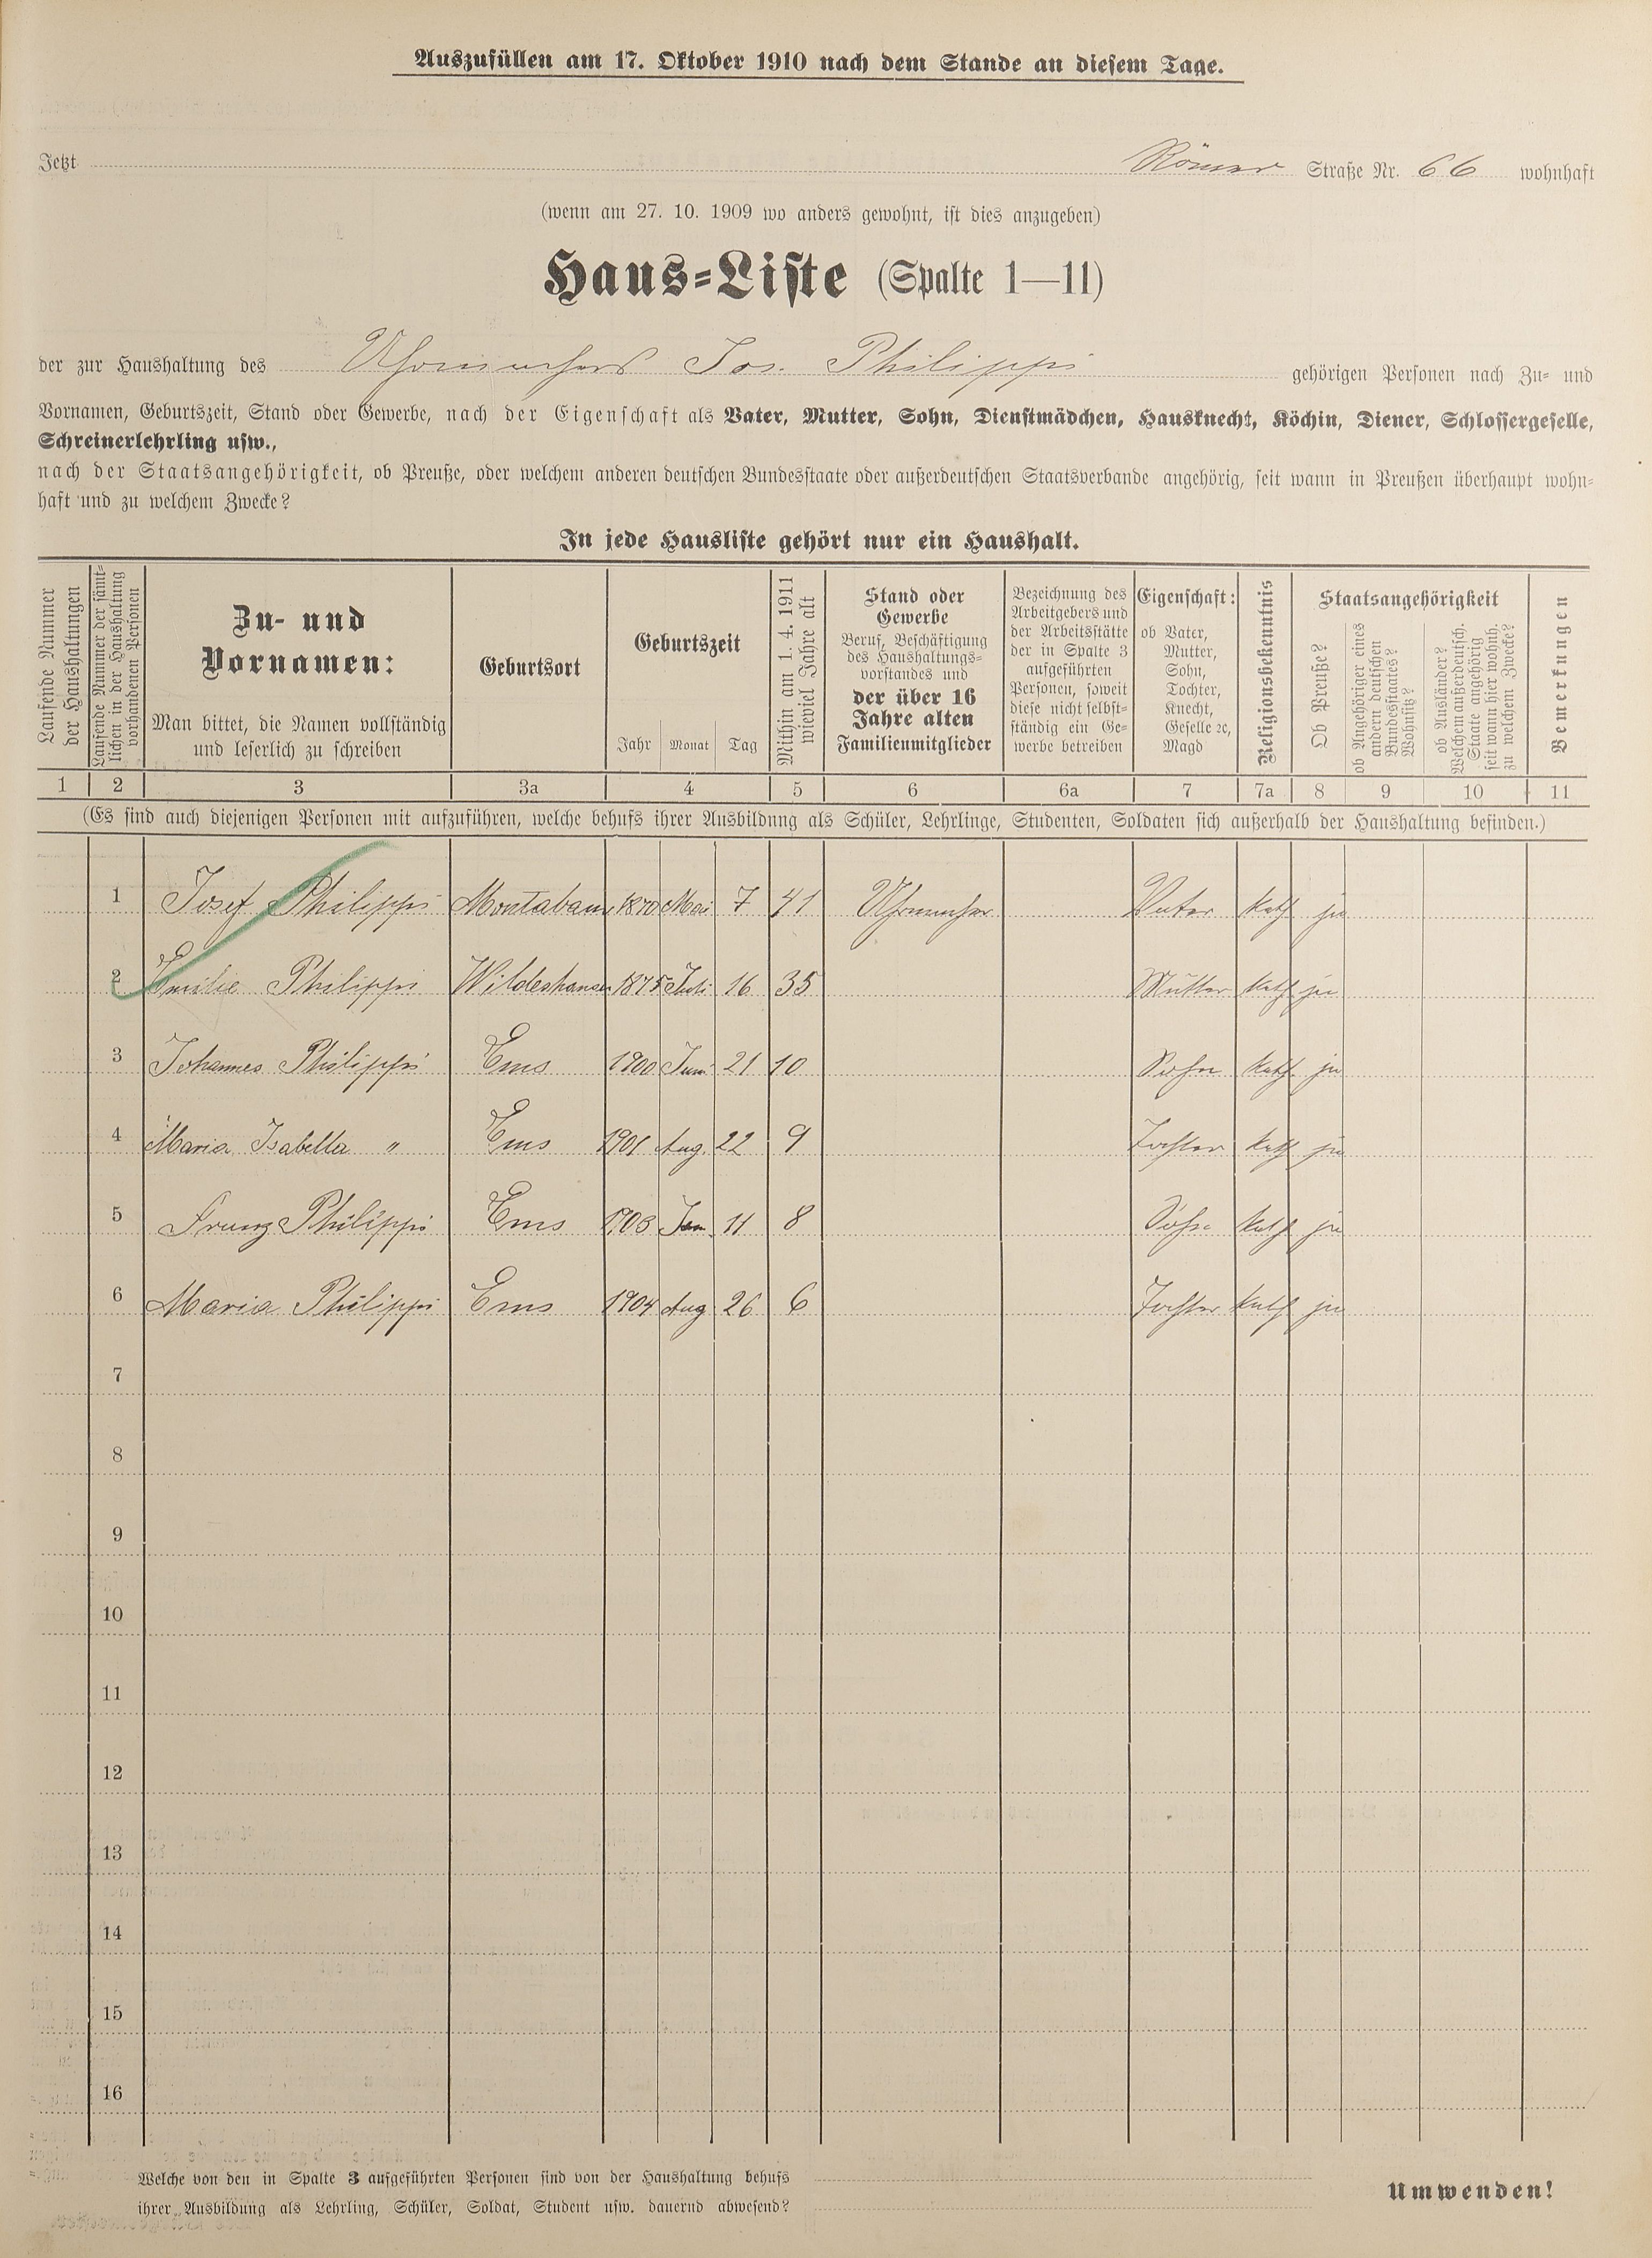 Auszufüllen am 17. Oktober 1910 nach dem Stande an diesem Tage.
Jetzt Römer Straße Nr. 66 wohnhaft
(wenn am 27. 10. 1909 wo anders gewohnt, ist dies anzugeben)
Haus-Liste (Spalte 1—11)
der zur Haushaltung des Uhrmachers Jos. Philippi gehörigen Personen nach Zu- und
Vornamen, Geburtszeit, Stand oder Gewerbe, nach der Eigenschaft als Vater, Mutter, Sohn, Dienstmädchen, Hausknecht, Köchin, Diener, Schlossergeselle,
Schreinerlehrling usw.,
nach der Staatsangehörigkeit, ob Preuße, oder welchem anderen deutschen Bundesstaate oder außerdeutschen Staatsverbande angehörig, seit wann in Preußen überhaupt wohn-
haft und zu welchem Zwecke?
In jede Hausliste gehört nur ein Haushalt.
Laufende Nummer
der Haushaltungen
Laufende Nummer der sämt-
lichen in der Haushaltung
vorhandenen Personen
Zu- und
Vornamen:
Man bittet, die Namen vollständig
und leserlich zu schreiben
Geburtsort
Geburtszeit
Jahr Monat Tag
Mithin am 1. 4. 1911
wieviel Jahre alt
Stand oder
Gewerbe
Beruf, Beschäftigung
des Haushaltungs-
vorstandes und
der über 16
Jahre alten
Familienmitglieder
Bezeichnung des
Arbeitgebers und
der Arbeitsstätte
der in Spalte 3
aufgeführten
Personen, soweit
diese nicht selbst-
ständig ein Ge-
werbe betreiben
Eigenschaft:
ob Vater,
Mutter,
Sohn,
Tochter,
Knecht,
Geselle ec,
Magd
Religionsbekenntnis
Staatsangehörigkeit
Ob Preuße?
ob Angehöriger eines
andern deutschen
Bundesstaates?
Wohnsitz?
ob Ausländer?
Welchem außerdeutsch.
Staate angehörig
seit wann hier wohnh.
zu welchem Zwecke?
Bemerkungen
1 2 3 3a 4 5 6 6a 7 7a 8 9 10 11
(Es sind auch diejenigen Personen mit aufzuführen, welche behufs ihrer Ausbildung als Schüler, Lehrlinge, Studenten, Soldaten sich außerhalb der Haushaltung befinden.)
1 Josef Philippi Montabaur 1870 Mai 7 41 Uhrmacher Vater kath ja
2 Emilie Philippi Wildeshausen 1875 Juli 16 35 Mutter kath ja
3 Johannes Philippi Ems 1900 Juni 21 10 Sohn kath. ja
4 Maria Isabella " Ems 1901 Aug. 22 9 Tochter kath ja
5 Franz Philippi Ems 1903 Jan. 11 8 Sohn kath ja
6 Maria Philippi Ems 1904 Aug 26 6 Tochter kath ja
7
8
9
10
11
12
13
14
15
16
Welche von den in Spalte 3 aufgeführten Personen sind von der Haushaltung behufs
ihrer Ausbildung als Lehrling, Schüler, Soldat, Student usw. dauernd abwesend?
Umwenden!